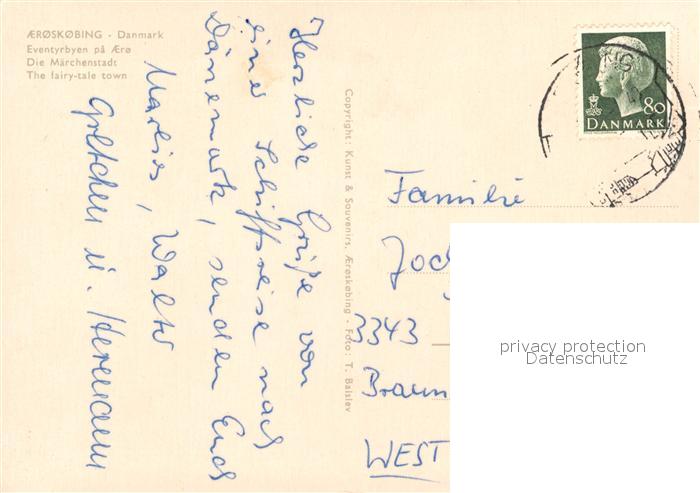 ÆRØSKØBING - Danmark
Eventyrbyen på Ærø
Die Märchenstadt
The fairy-tale town
Herzliche Grüße von
einer Schiffsreise nach
Dänemark, senden Euch
Marlies, Walter
Gretchen u. Hermann
Copyright: Kunst & Souvenirs, Ærøskøbing - Foto: T. Balslev
80
DANMARK
Familie
Jo
3343
Braun
WEST
privacy protection
Datenschutz